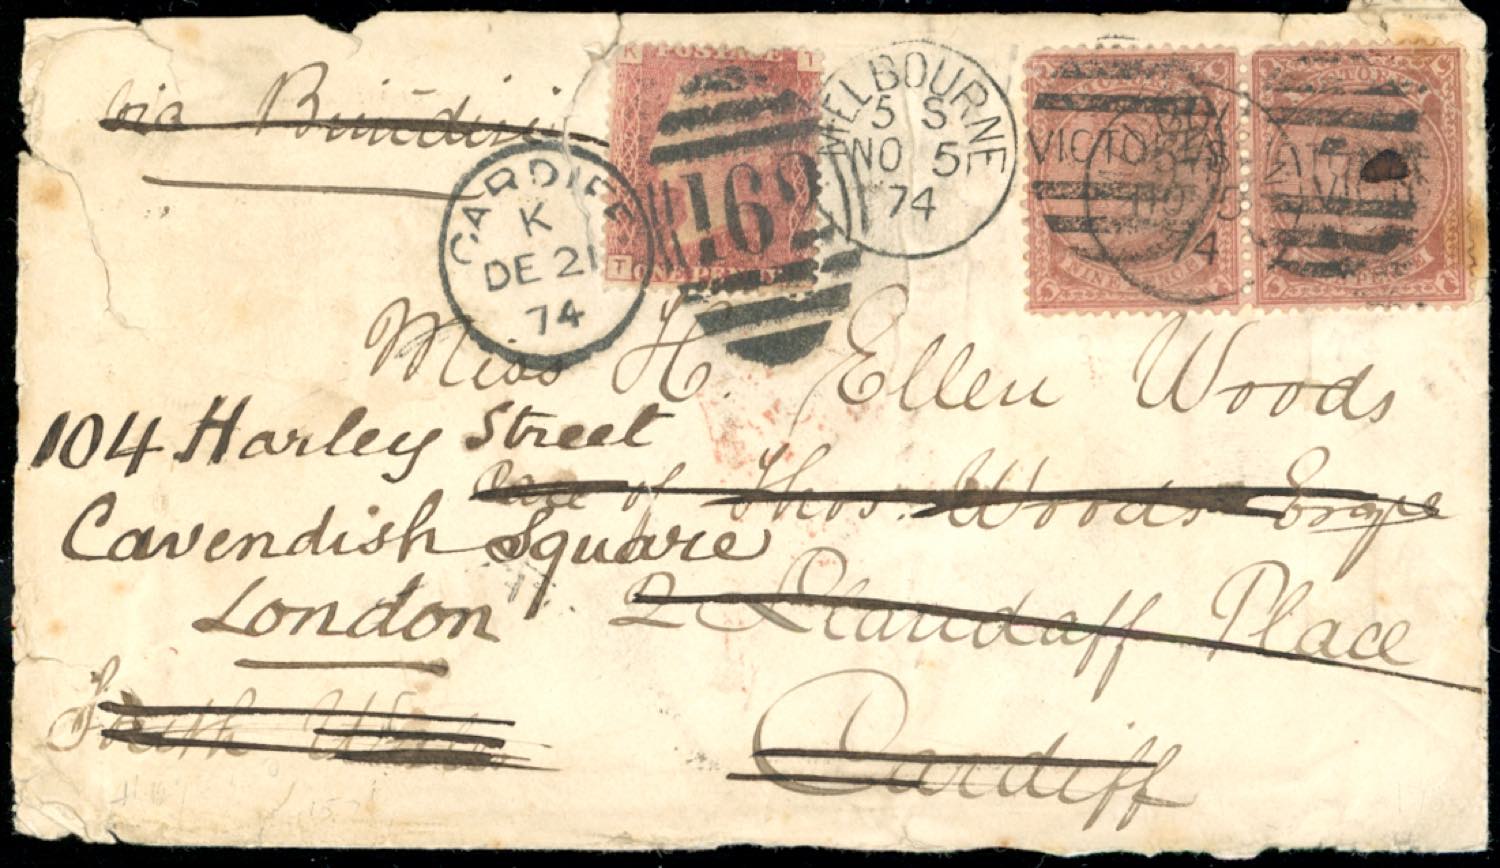 via Brindisi
K POSTAGE T
T ONE PENNY
162
CARDIFF
K
DE 21
74
MELBOURNE
5 S
NO 5
74
VICTORIA
NO 5
74
NINE PENCE
Miss H. Ellen Woods
104 Harley Street
Care of Thos. Woods Esqre
Cavendish Square
2 Llandaff Place
London
South Wales
Cardiff